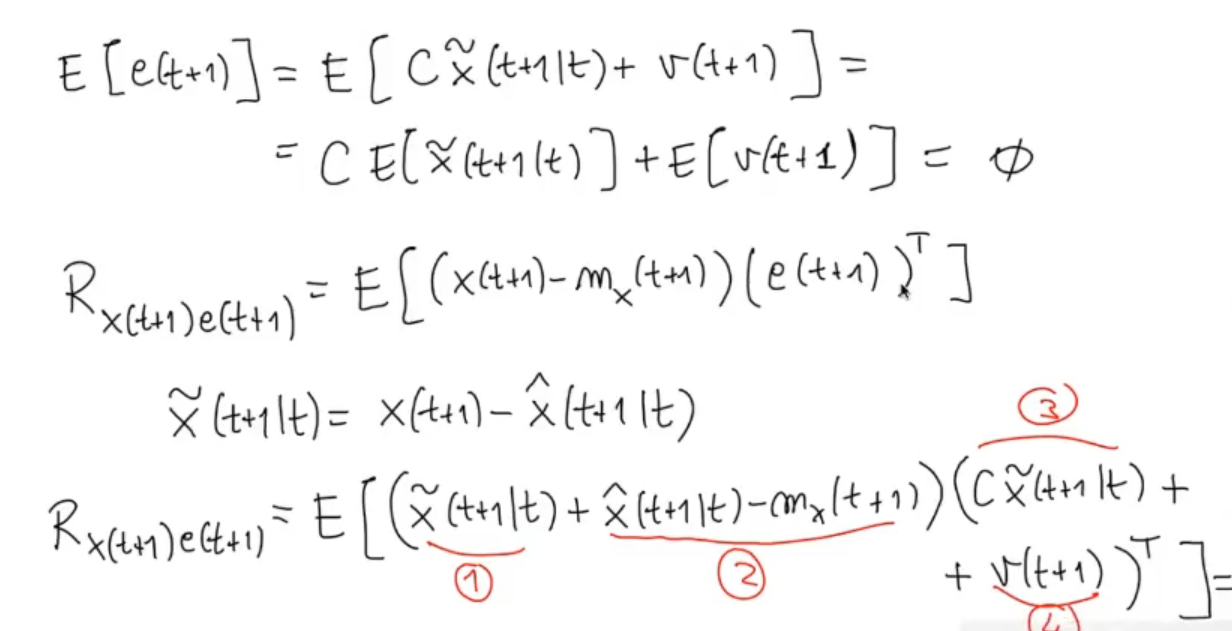 E[e(t+1)] = E[Cx̃(t+1|t) + v(t+1)] =
= C E[x̃(t+1|t)] + E[v(t+1)] = ϕ
R_{x(t+1)e(t+1)} = E[(x(t+1) - m_x(t+1))(e(t+1))^T]
x̃(t+1|t) = x(t+1) - x̂(t+1|t)
③
R_{x(t+1)e(t+1)} = E[(x̃(t+1|t) + x̂(t+1|t) - m_x(t+1))(Cx̃(t+1|t) +
+ v(t+1))^T] =
① ② ④